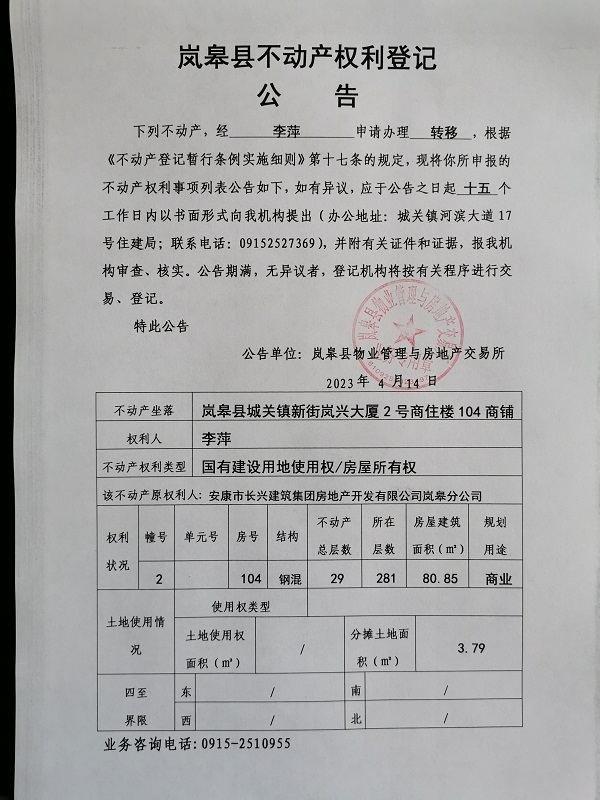 岚皋县不动产权利登记
公 告
下列不动产，经 李萍 申请办理 转移，根据
《不动产登记暂行条例实施细则》第十七条的规定，现将你所申报的
不动产权利事项列表公告如下，如有异议，应于公告之日起 十五 个
工作日内以书面形式向我机构提出（办公地址：城关镇河滨大道17
号住建局；联系电话：09152527369），并附有关证件和证据，报我机
构审查、核实。公告期满，无异议者，登记机构将按有关程序进行交
易、登记。
特此公告
公告单位：岚皋县物业管理与房地产交易所
2023年 4 月 14 日
不动产坐落 岚皋县城关镇新街岚兴大厦2号商住楼104商铺
权利人 李萍
不动产权利类型 国有建设用地使用权/房屋所有权
该不动产原权利人：安康市长兴建筑集团房地产开发有限公司岚皋分公司
权利状况 幢号 单元号 房号 结构 不动产总层数 所在层数 房屋建筑面积（㎡） 规划用途
2 104 钢混 29 281 80.85 商业
土地使用情况 使用权类型
土地使用权面积（㎡） / 分摊土地面积（㎡） 3.79
四至界限 东 / 南 /
西 / 北 /
业务咨询电话:0915-2510955